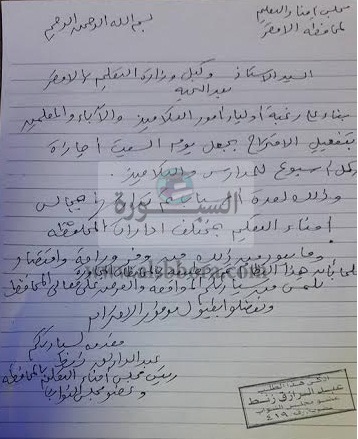 مجلس أمناء التعليم
بمحافظة الاقصر
بسم الله الرحمن الرحيم
السيد الأستاذ / وكيل وزارة التعليم بالاقصر
بعد التحية
بناء على رغبة أولياء أمور التلاميذ والآباء والمعلمين
بتفعيل الاقتراح بجعل يوم السبت اجازة
كل أسبوع للمدارس والتلاميذ
وذلك لعدة أسباب تم مجالس
أمناء التعليم بمختلف ادارات المحافظة
السبورة
هذا
نلتمس من سيادتكم الموافقة والعرض على معالى المحافظ
وتفضلوا بقبول موفور الاحترام
مقدمه لسيادتكم
عبد الرازق زنط
رئيس مجلس أمناء التعليم بالمحافظة
وعضو مجلس النواب
عبد الرازق زنط
عضو مجلس النواب